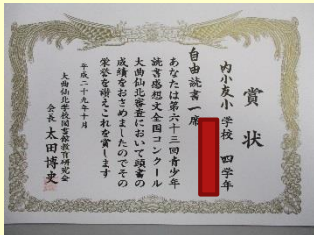 賞状
内小友小学校 四学年
自由読書一席
あなたは第六十三回青少年
読書感想文全国コンクール
大曲仙北審査において頭書の
成績をおさめましたのでその
栄誉を讃えこれを賞します
平成二十九年十月
大曲仙北学校図書館教育研究会
会長 太田博史